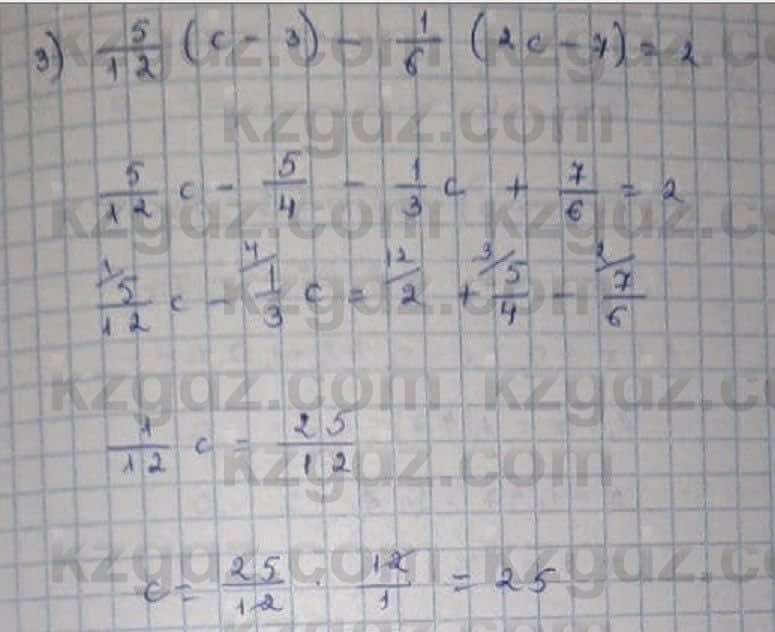 3) 5/12 (c - 3) - 1/6 (2c - 7) = 2
5/12 c - 5/4 - 1/3 c + 7/6 = 2
1/ 5/12 c - 4/ 1/3 c = 12/ 2 + 3/ 5/4 - 2/ 7/6
1/12 c = 25/12
c = 25/12 · 12/1 = 25
kzgdz.com kzgdz.com
kzgdz.com
kzgdz.com kzgdz.com
kzgdz.com
kzgdz.com kzgdz.com
kzgdz.com
kzgdz.com kzgdz.com